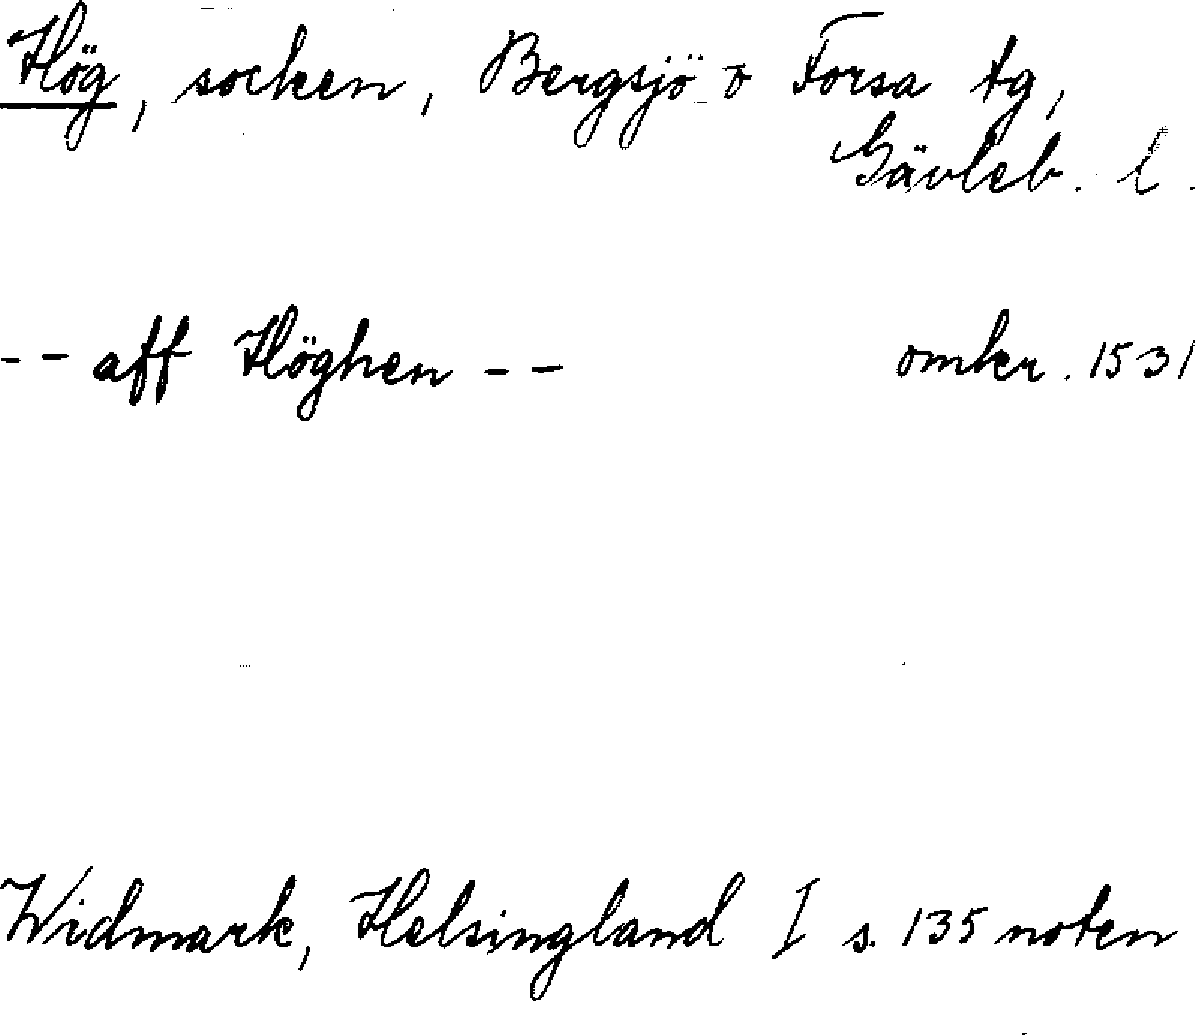 Hög, socken, Bergsjö o Forsa tg,
Gävleb. l.
-- aff Höghen --
omkr. 1531
Widmark, Helsingland I s. 135 noten